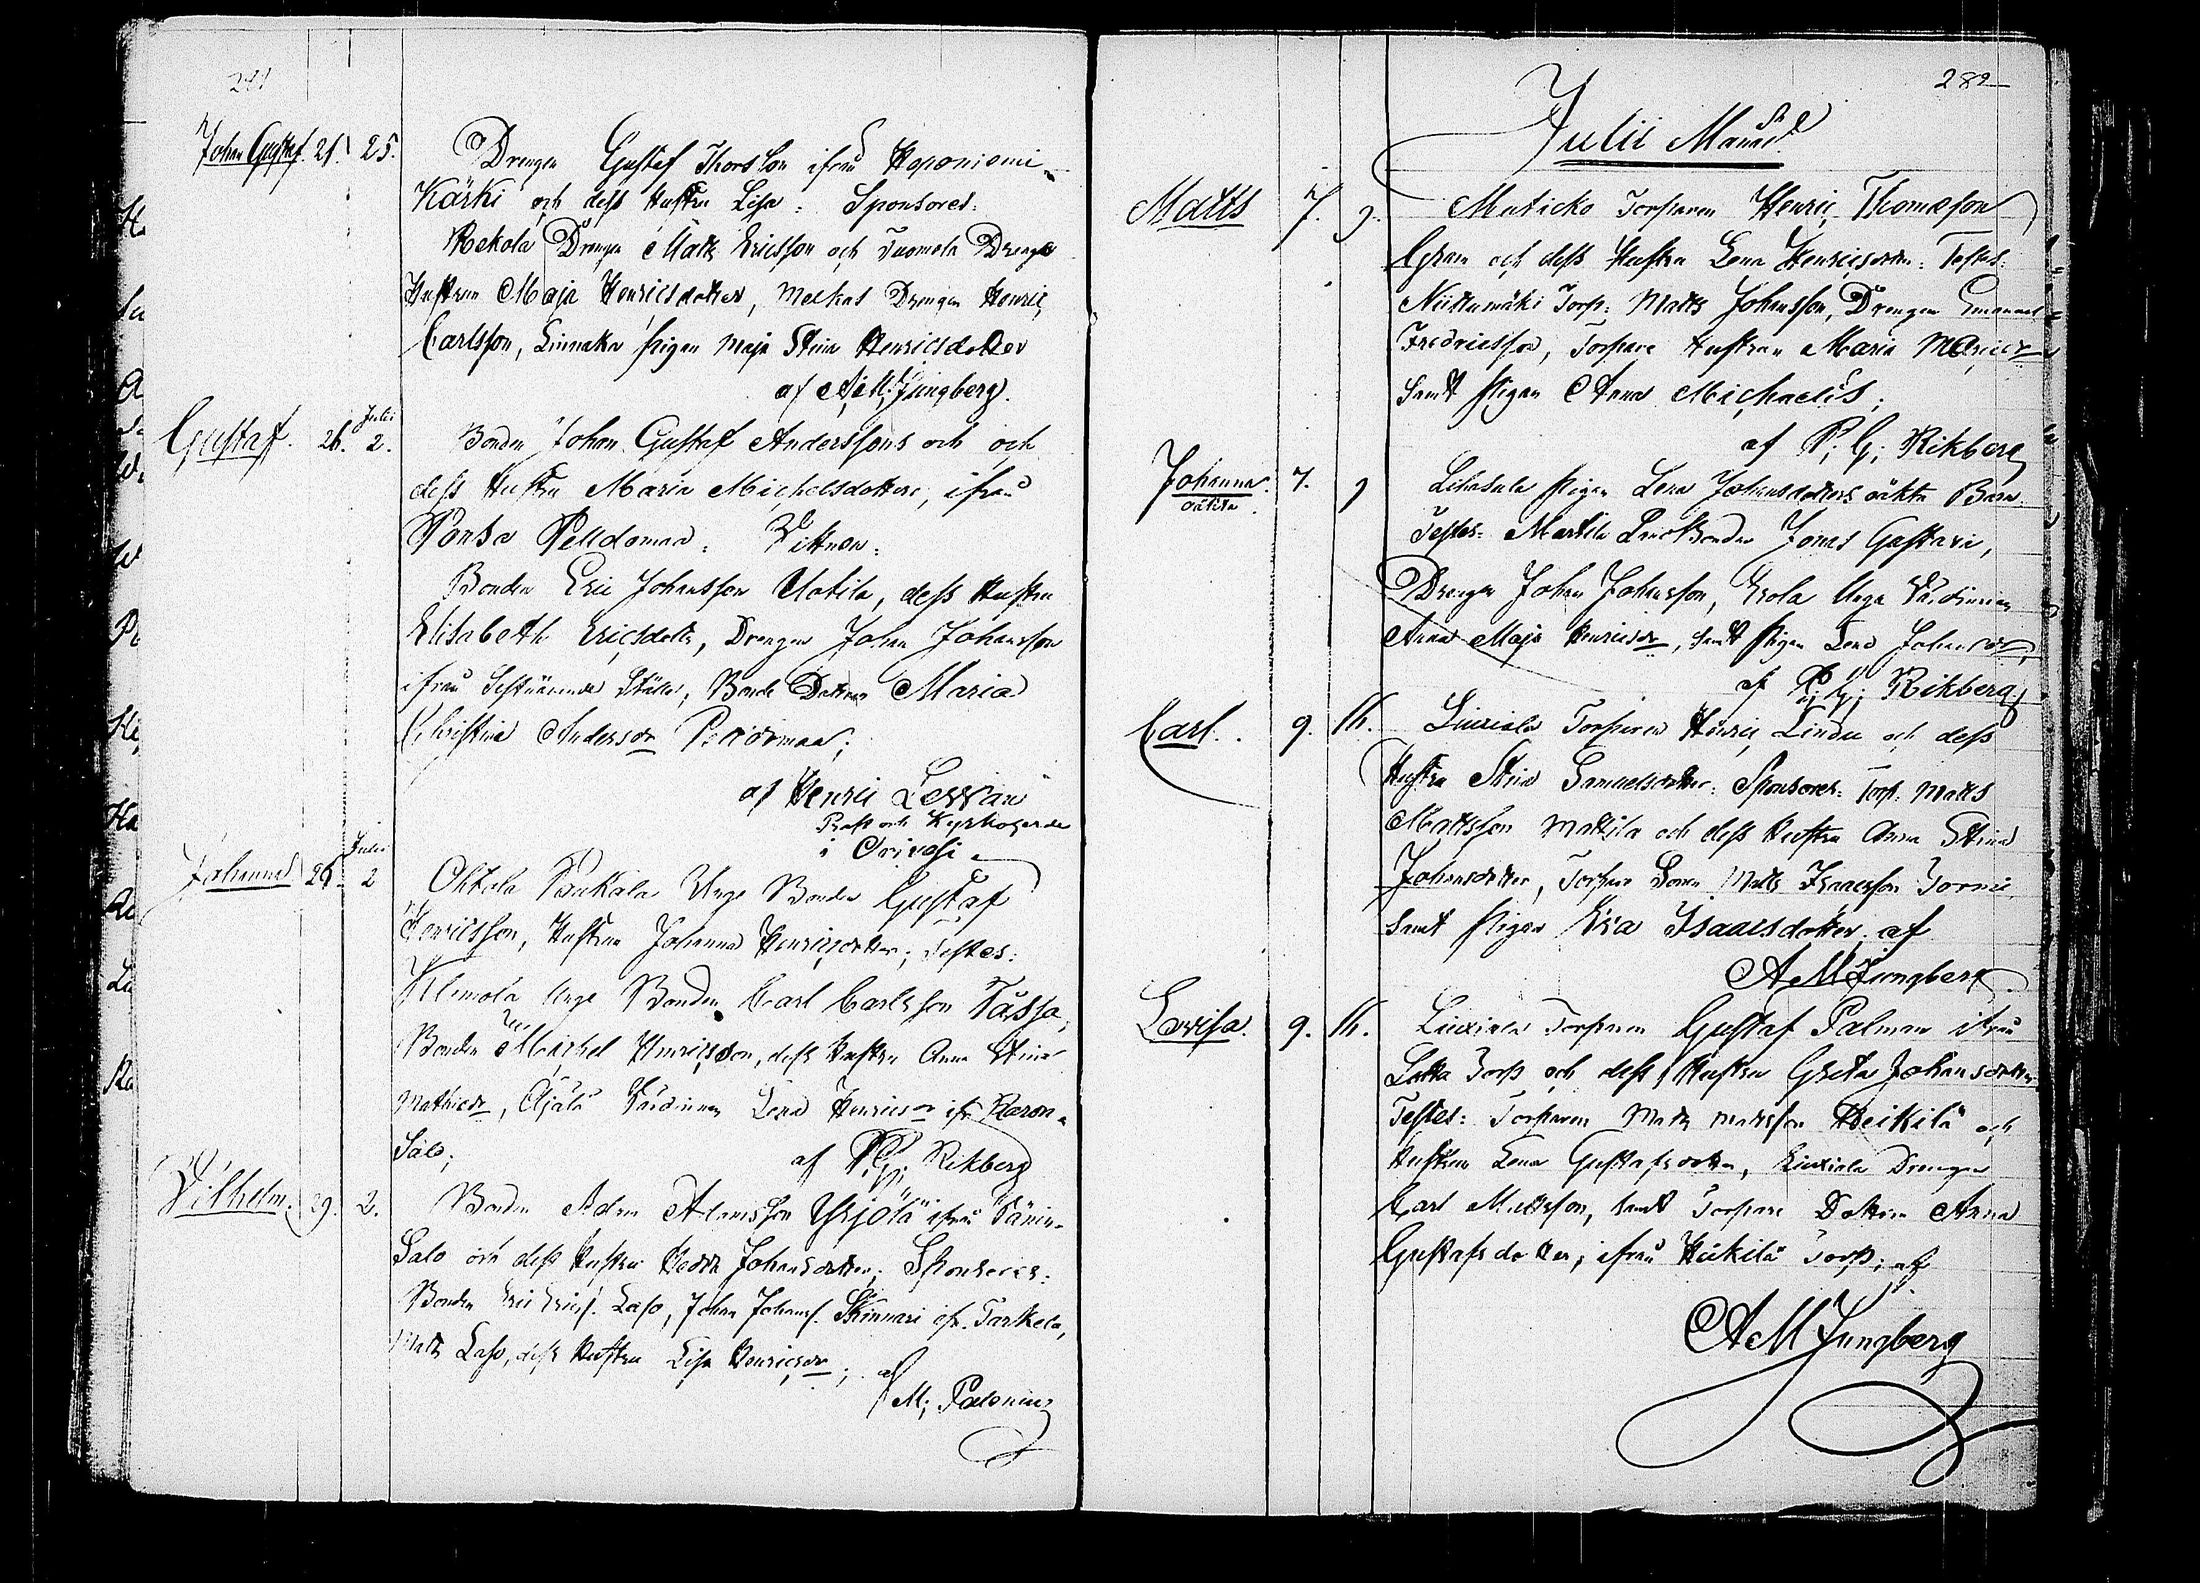 281
Johan Gustaf. 21. 25. Drengen Gustaf Thorsson ifrån Haponiemi
Kärki och dess Hustru Lisa: Sponsores:
Rekola Drengen Matts Ericsson och Tuomola Drengs
Hustrun Maja Henricsdotter, Drengen Henric
Carlsson, Pigan Maja Stina Henricsdotter
af A: M: Ljungberg.
Gustaf. 26. Julii 2. Bonden Johan Gustaf Anderssons och och
dess Hustru Maria Michelsdotters, ifrån
Ponsa Vittnen:
Bonden Eric Johansson Uotila, dess Hustru
Elisabeth Ericsdotter, Drengen Johan Johansson
ifrån Ställe, Bonde Dottren Maria
Christina Andersdr
af Henric
och Kyrkoherde
i Orivesi
Johanna 26. Julii 2 Ohtola Paukala Unge Bonden Gustaf
Henricsson, Hustrun Johanna Henricsdotter; Testes:
Klemola Unge Bonden Carl Carlsson Tassa,
Bonden Michel Henricsson, dess Hustru Anna Stina
Mathiedr, Äijälä Värdinnan Lena Henricsdr ifr. Haron-
Salo;
af P: G: Rikberg
Vilhelm. 29. 2. Bonden Adam Adamsson Yrjölä ifrån
Salo och dess Hustru Hedda Johansdotter; Sponsores:
Bonden Eric Ericss. Laso, Johan Johanss. Skinnari ifr.
Matts Laso, dess Hustru Lisa Henricsdr; af
M: Palonius
282
Julii Månad
Matts 7. 9. Torparen Henric Thomasson
Gran och dess Hustru Lena Henricsdotter: Testes:
Niittumäki Torp: Matts Johansson, Drengen Emanuel
Fredricsson, Torpare Hustrun Maria
Samt Pigan Anna Michaelis;
af P: G: Rikberg
Johanna. 7. 9 Pigan Lena Johansdotters oäkta Barn
oäkta
Testes: Bonden Jonas Gustavi,
Drengen Johan Johansson, Erola Unga Värdinnan
Anna Maja Henricsdr, samt Pigan Lena Johansdr,
af P: G: Rikberg
Carl. 9. 16. Liuxiala Torparen Henric Lindu och dess
Hustru Stina Samuelsdotter: Sponsores: Torp: Matts
Mattsson Mattila och dess Hustru Anna Stina
Johansdotter, Torpare Sonen Matts Isaacsson
samt Pigan Eva Isaacsdotter. af
A M Ljungberg
Lovisa. 9. 16. Liuxiala Torparen Gustaf Palman ifrån
Torp och dess Hustru Greta Johansdotter
Testes: Torparen Matts Mattsson Heikilä och
Hustrun Lena Gustafsdotter, Liuxiala Drengen
Carl Mattsson, samt Torpare Dottren Anna
Gustafsdotter, ifrån Heikilä Torp; af
A M Ljungberg